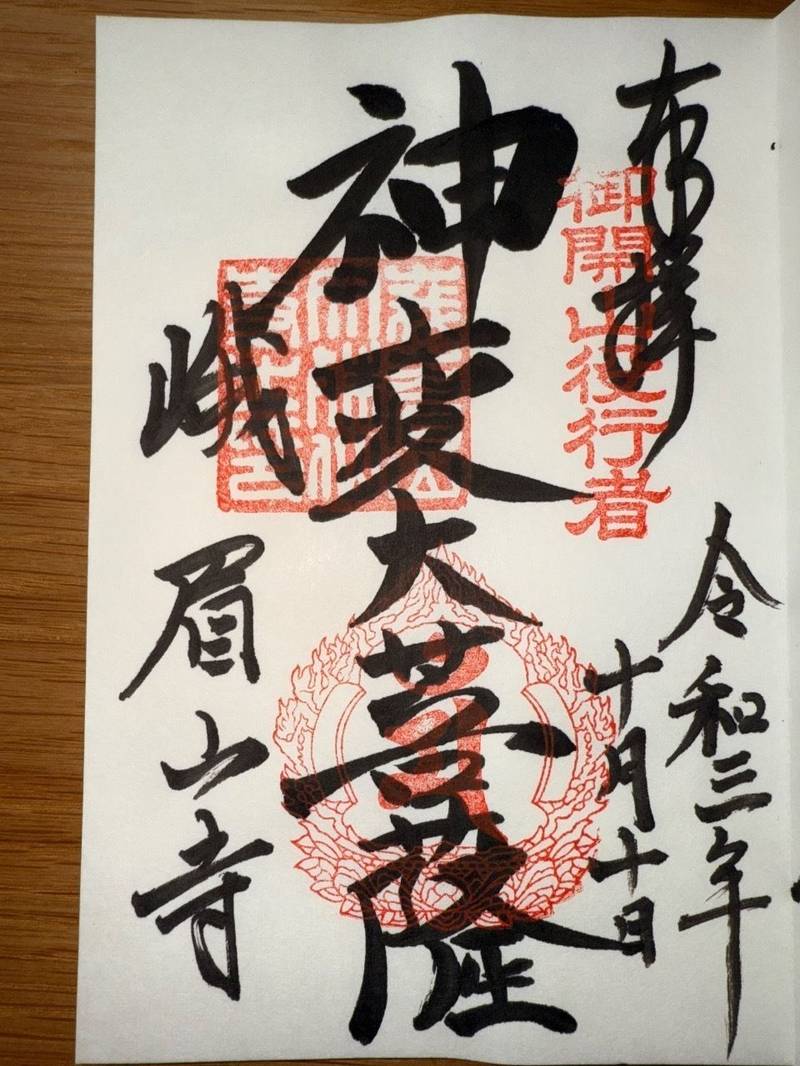 奉拝
御開山役行者
令和三年
十月十日
神変大菩薩
峨眉山寺